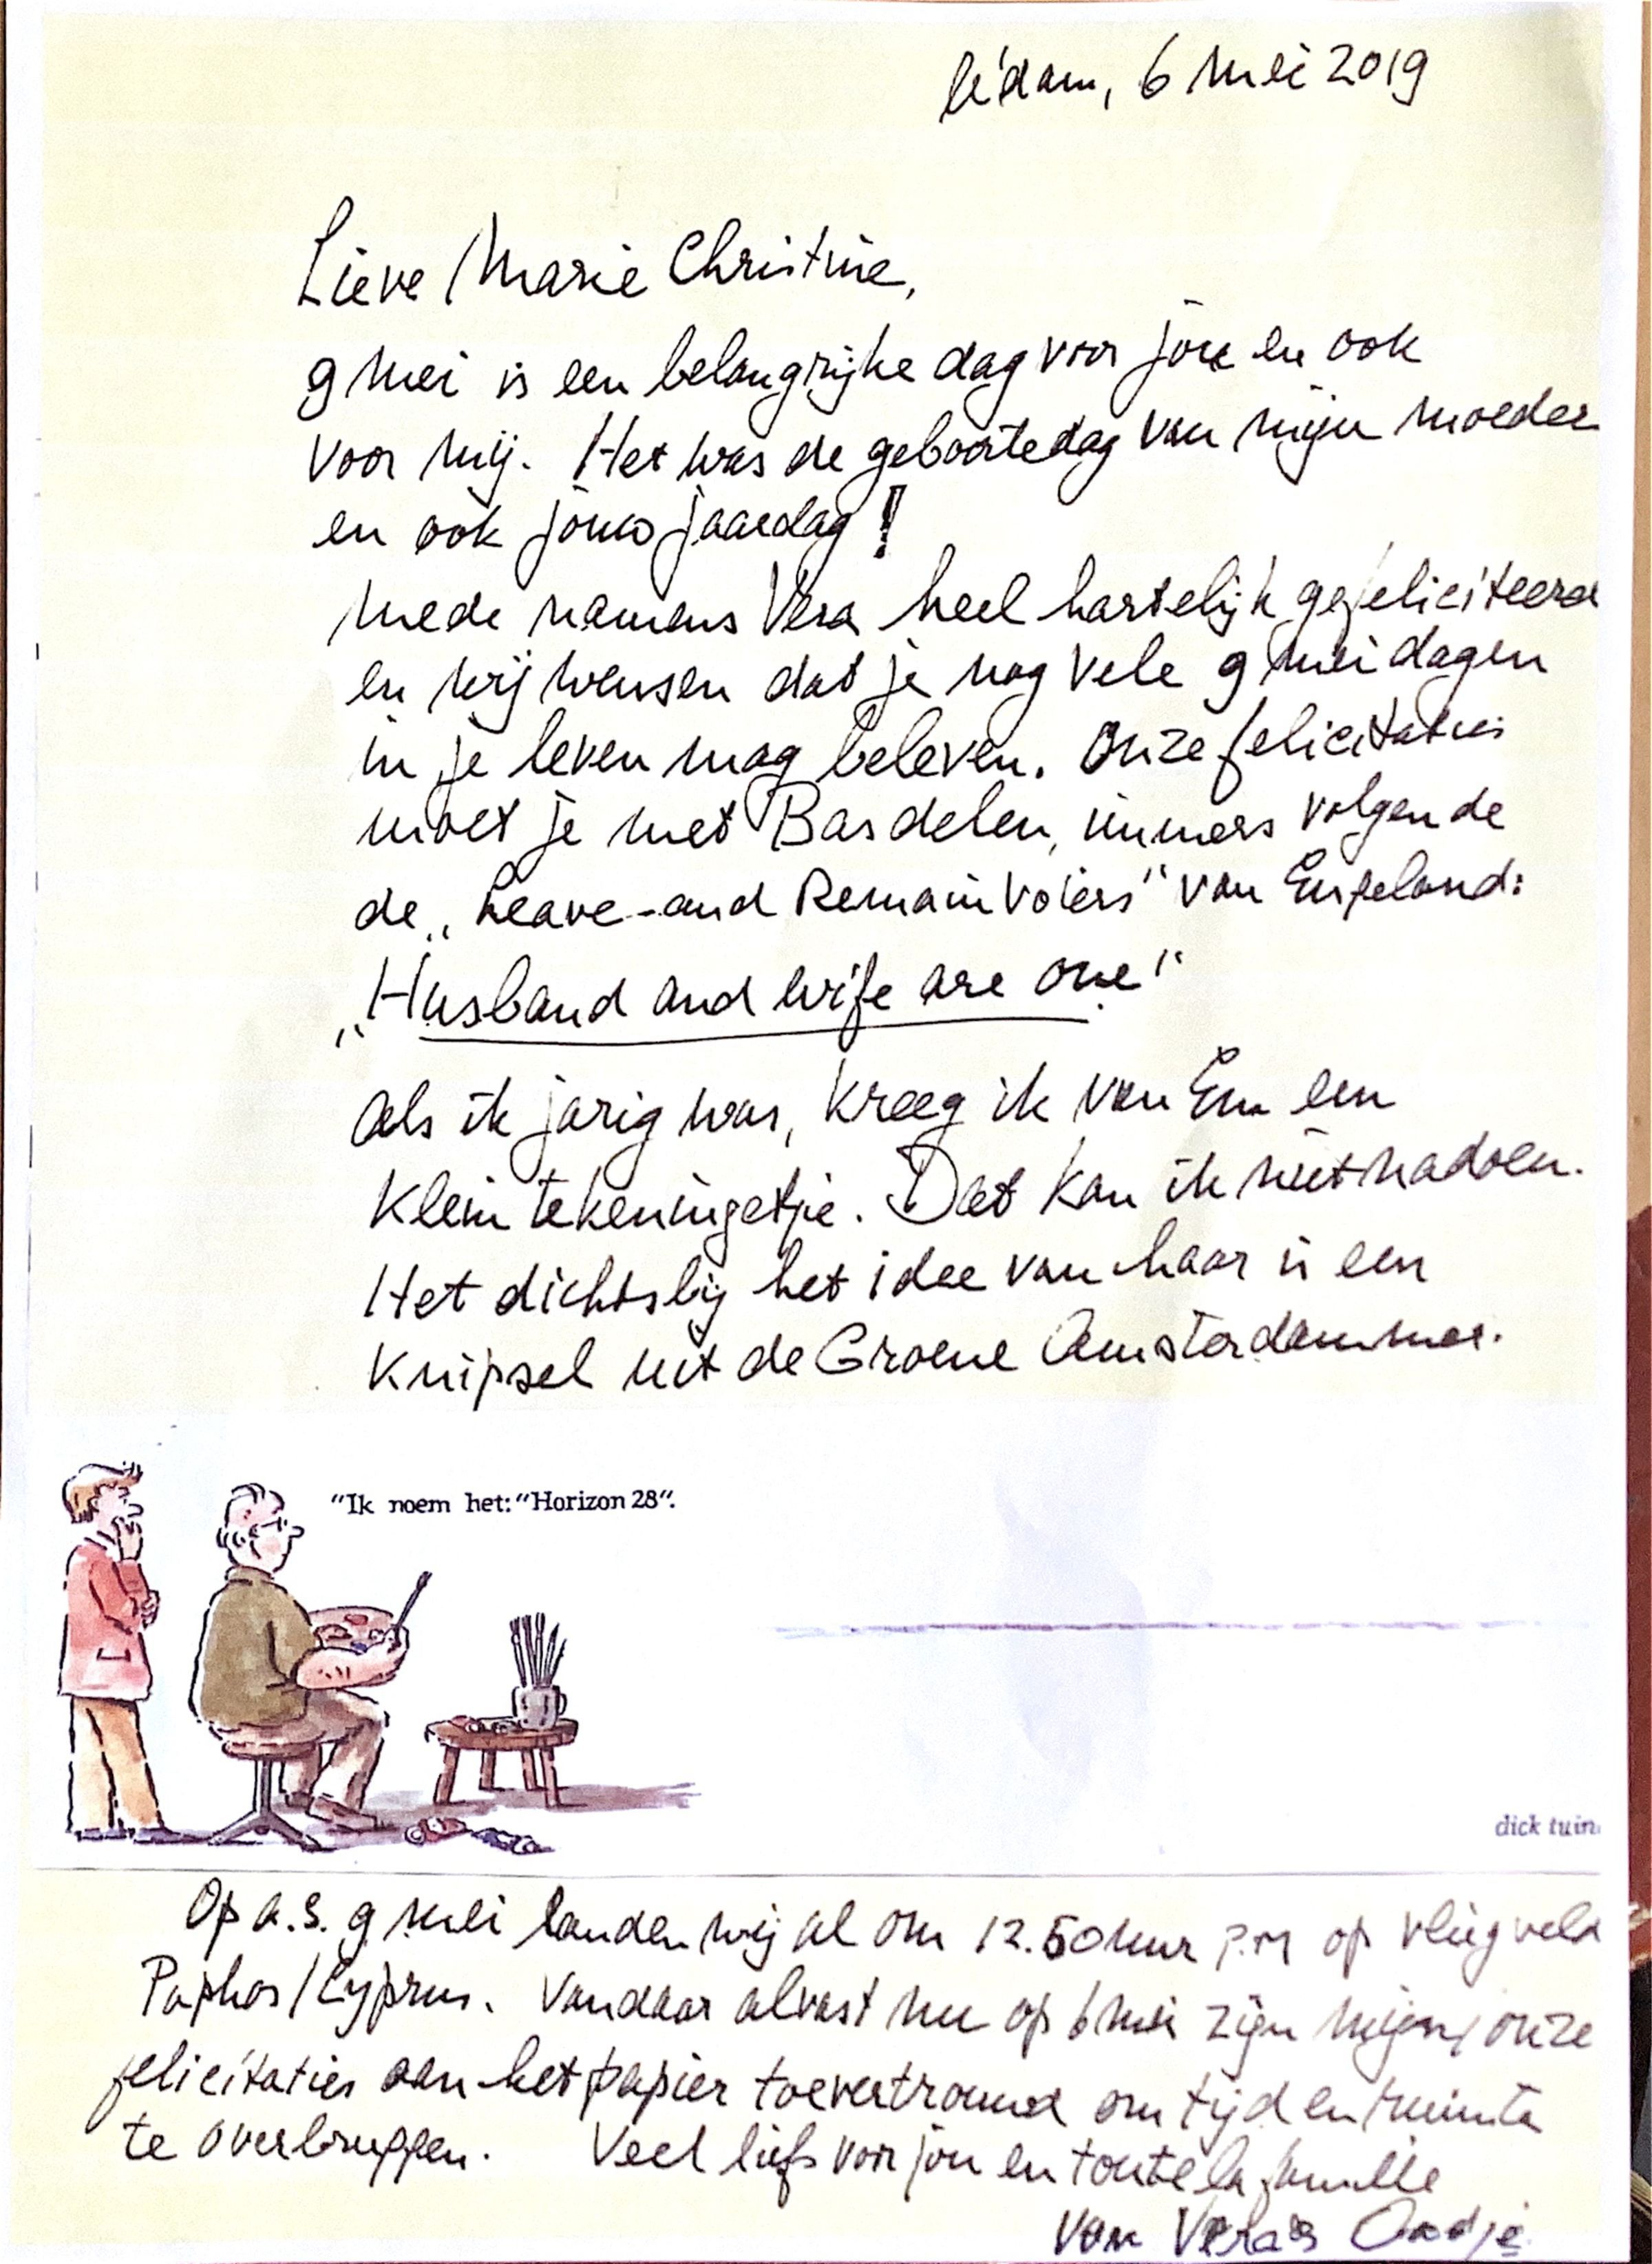 A'dam, 6 mei 2019
Lieve Marie Christine,
9 mei is een belangrijke dag voor jou en ook
voor mij. Het was de geboortedag van mijn moeder
en ook jouw jaardag!
Mede namens Vera heel hartelijk gefeliciteerd
en wij wensen dat je nog vele 9 mei dagen
in je leven mag beleven. Onze felicitaties
moet je met Bas delen, immers volgende
de „Leave-and Remain voters" van Engeland:
„Husband and wife are one"
Als ik jarig was, kreeg ik van Em een
klein tekeningetje. Dat kan ik niet nadoen.
Het dichtsbij het idee van haar is een
knipsel uit de Groene Amsterdammer.
"Ik noem het: "Horizon 28".
dick tuin
Op a.s. 9 mei landen wij al om 12.50 uur p.m op vliegveld
Paphos/Cyprus. Vandaar alvast nu op 6 mei zijn mijn/onze
felicitaties aan het papier toevertrouwd om tijd en ruimte
te overbruggen. Veel liefs voor jou en toute la famille
van Vera's